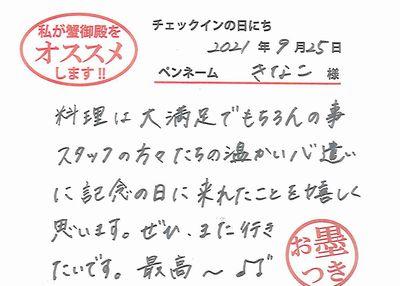 私が蟹御殿を
オススメ
します!!
チェックインの日にち
2021 年 9 月 25 日
ペンネーム きなこ 様
料理は大満足でもちろんの事
スタッフの方々たちの温かい心遣い
に記念の日に来れたことを嬉しく
思います。ぜひ、また行き
たいです。最高～♪♪
お墨
つき